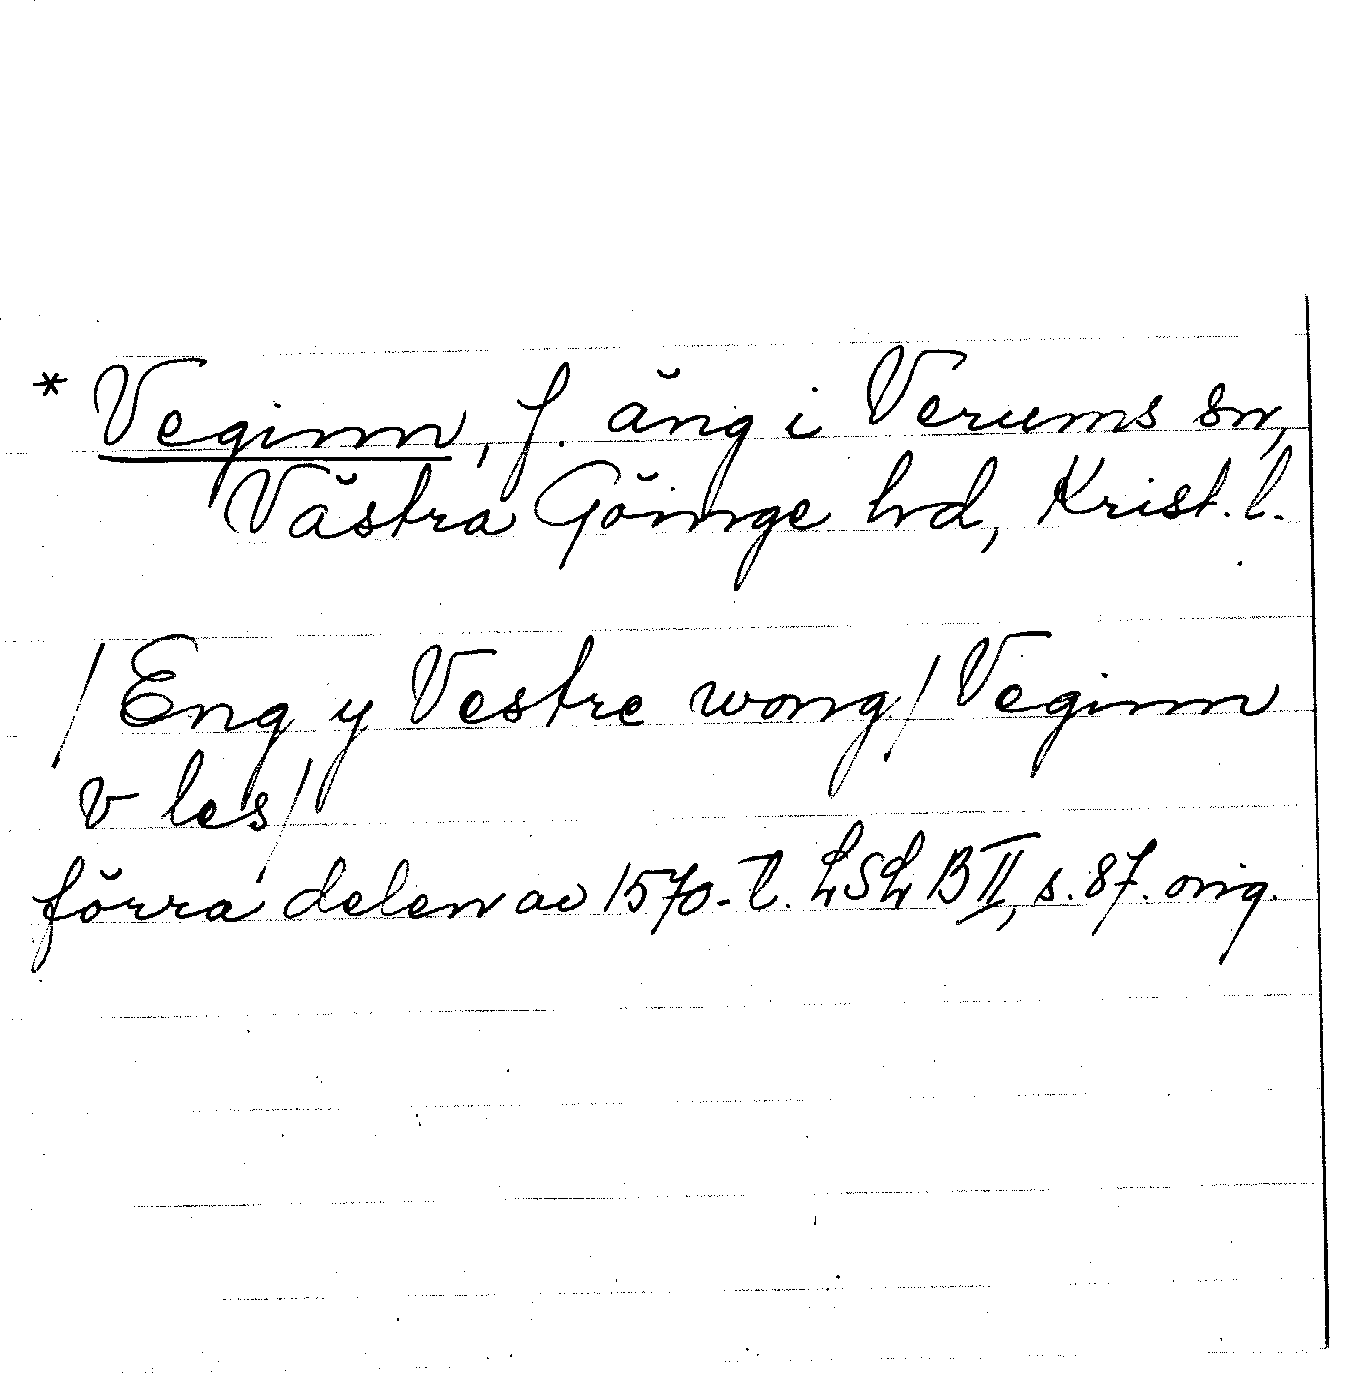 * Veginn, f. äng i Verums sn,
Västra Göinge hd, Krist. l.
/Eng y Vestre wong/ Veginn
v les/
förra delen av 1570-t. LSL B II, s. 87. orig.